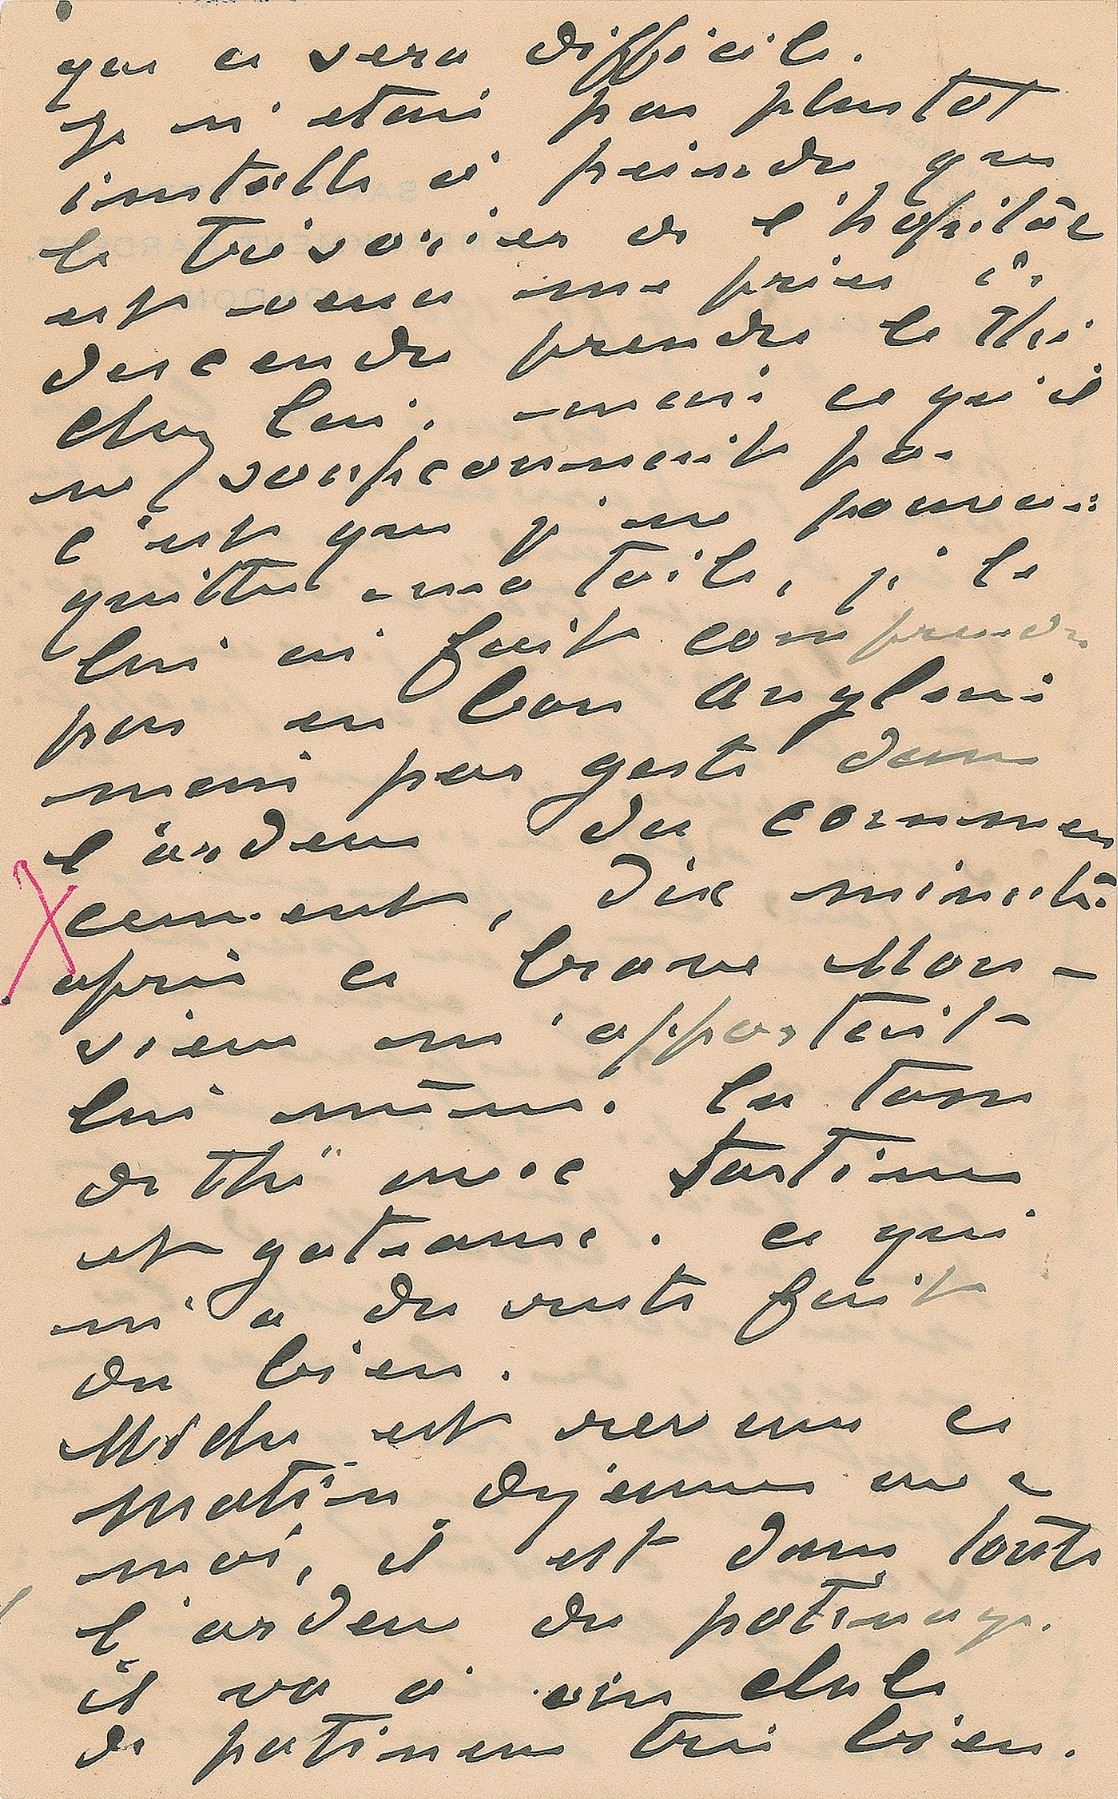 que ce sera difficile.
Je n'étais pas plustot
installé à peindre que
le trésorier de l'hopital
est venu me prier de
descendre prendre le thé
chez lui. mais ce qu'il
ne soupconnait pas
c'est que je ne pouvais
quitter ma toile, je le
lui ai fait comprendre
pas en bon Anglais
mais par geste dans
l'ardeur du commen
cement, dix minutes
après ce brave Mon-
sieur m'apportait
lui même. la tasse
de thé avec tartines
et gateaux. ce qui
m'a du reste fait
du bien.
Miche est revenu ce
matin dejeuner avec
moi, il est dans toute
l'ardeur du patinage.
il va à un club
de patineurs très bien.